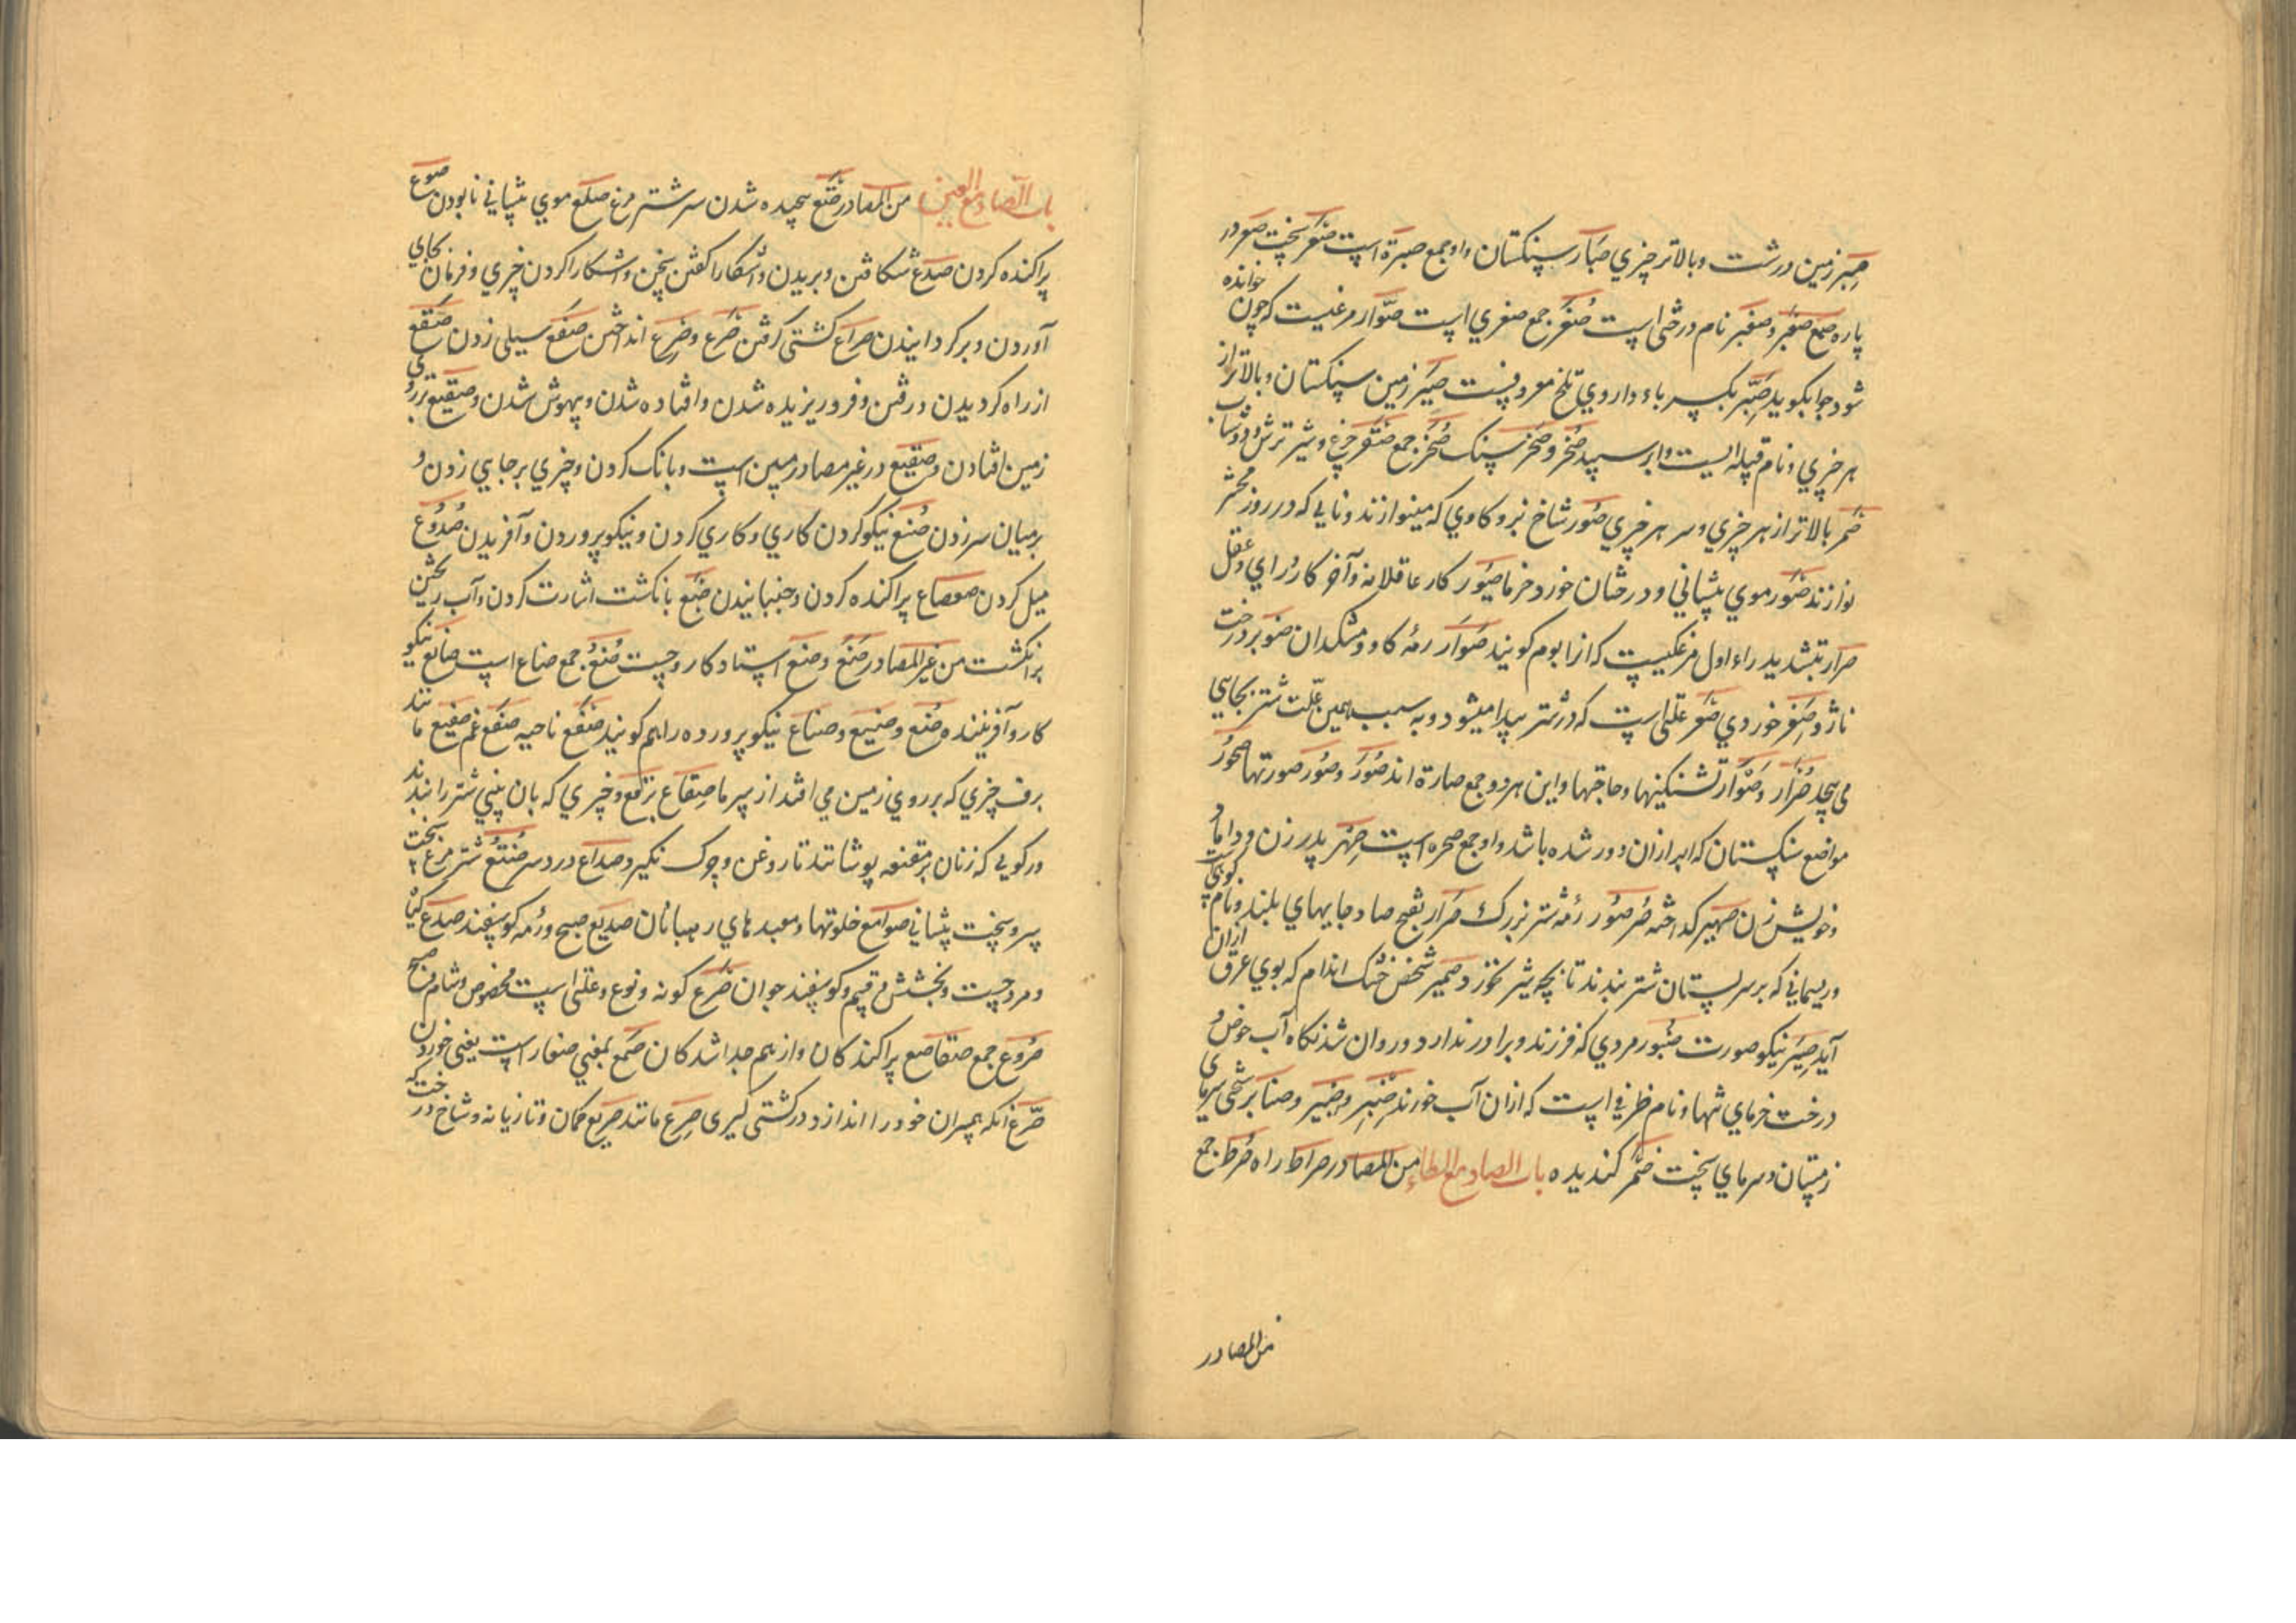 صبر زمین درشت و بالاتر چیزي صبار سنکستان و او جمع صبرة است صقر سخت صعر در
پاره صمغ صعبر و صعبر نام درختی است صغر جمع صغری است صوار مرغیست که چون خوانده
شود جواب کوید صبر بکسر باء داروي تلخ معروفست صیر زمین سنکستان و بالاتر از
هر چیزي و نام قبیله ایست و ابر سپید صخر و صخر سنک صخر جمع صقر چرغ و شیر ترش و دوشاب
صمر بالاتر از هر چیزي و سر هر چیزي صور شاخ نر و کاوي که مینوازند و نایی که در روز محشر
نوازند صور موي پیشاني و درختان خورد خرما صیور کار عاقلانه و آخر کار و راي و عقل
صرار بتشدید راء اول مرغکیست که انرا بوم کویند صوار رمهٔ کاو و مشکدان صنوبر درخت
ناژ و صغر خوردي صعر علتی است که در شتر پیدا میشود و به سبب همین علت شتر بجایي
می پیچد صرار و صوار تشنکیها و حاجتها و این هر دو جمع صارة اند صور و صور صورتها صحور
مواضع سنکستان که ابر ازان دور شده باشد و او جمع صحره است صهر پدر زن و داماد
و خویش زن صهیر کداخته صر صور رمهٔ شتر بزرک صرار بفتح صاد جایهاي بلند و نام کوهي است
و ریسماني که بر سر پستان شتر بندند تا بچه شیر نخورد صمیر شخص خشک اندام که بوي عرق ازان
آید صیر نیکو صورت صنبور مردي که فرزند و برادر ندارد و روان شدنکاه آب حوض و
درخت خرماي تنها و نام ظرفي است که ازان آب خورند صنبر و صنبر و صنابر سختی سرمای
زمستان و سرماي سخت صمر کندیده باب الصاد مع الطاء من المصادر صراط راه صرط جمع
من المصادر
باب الصاد مع العین من المصادر صتع پیچیده شدن سر شتر مرغ صلع موي پیشاني نابودن صوع
پراکنده کردن صدع شکافتن و بریدن و آشکارا کفتن سخن و اشکارا کردن چیزي و فرمان بجاي
آوردن و برکردانیدن صراع کشتی کرفتن صرع و صرع انداختن صفع سیلی زدن صقع
از راه کردیدن و رفتن و فرو ریزیده شدن و افتاده شدن و بیهوش شدن و صقیع بر روی
زمین افتادن و صقیع در غیر مصادر مبین است و بانک کردن و چیزي بر جایي زدن و
بر میان سر زدن صنع نیکو کردن کاري و کاري کردن و نیکو پروردن و آفریدن صدوع
میل کردن صعصاع پراکنده کردن و جنبانیدن صبع بانکشت اشارت کردن و آب ریختن
بر انکشت من غیر المصادر صنع و صنع استاد کار و چست صنع جمع صناع است صانع نیکو
کار و آفریننده صنع و صنیع و صناع نیکو پرورده را هم کویند صقع ناحیه صقع غم صقیع مانند
برف چیزي که بر روي زمین می افتد از سرما صقاع برقع و چیزي که بان بیني شتر را بندند
و رکویي که زنان بر مقنعه پوشانند تا روغن و چرک نکیرد صداع درد سر صنتع شتر مرغ سخت
سر و سخت پیشاني صوامع خلوتها و معبدهاي رهبانان صدیع صبح و رمهٔ کوسفند صدع کیاه
و مرد چست و بخشش و قسم و کوسفند جوان صرع کونه و نوع و علتی است مخصوص و شام و صبح
صروع جمع صقاصع پراکندکان و از هم جدا شدکان صمع بمعني صغار است یعنی خوردن
صرع انکه همسران خود را اندازد در کشتی کیری صرع مانند صریع کمان و تازیانه و شاخ درخت که